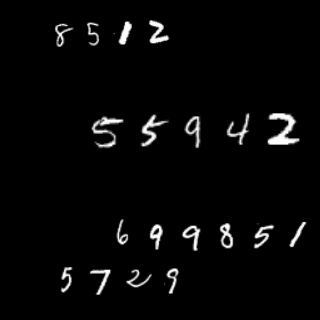 8512
55942
699851
5729